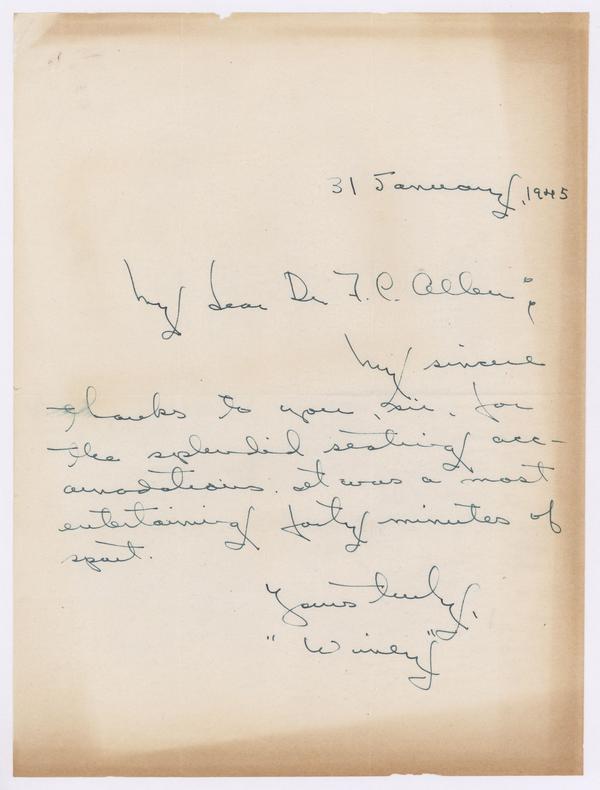 31 January, 1945
My dear Dr F. C. Allen;
My sincere
thanks to you, sir, for
the splendid seating acc-
omodations. It was a most
entertaining forty minutes of
sport.
Yours truly,
"Winey"